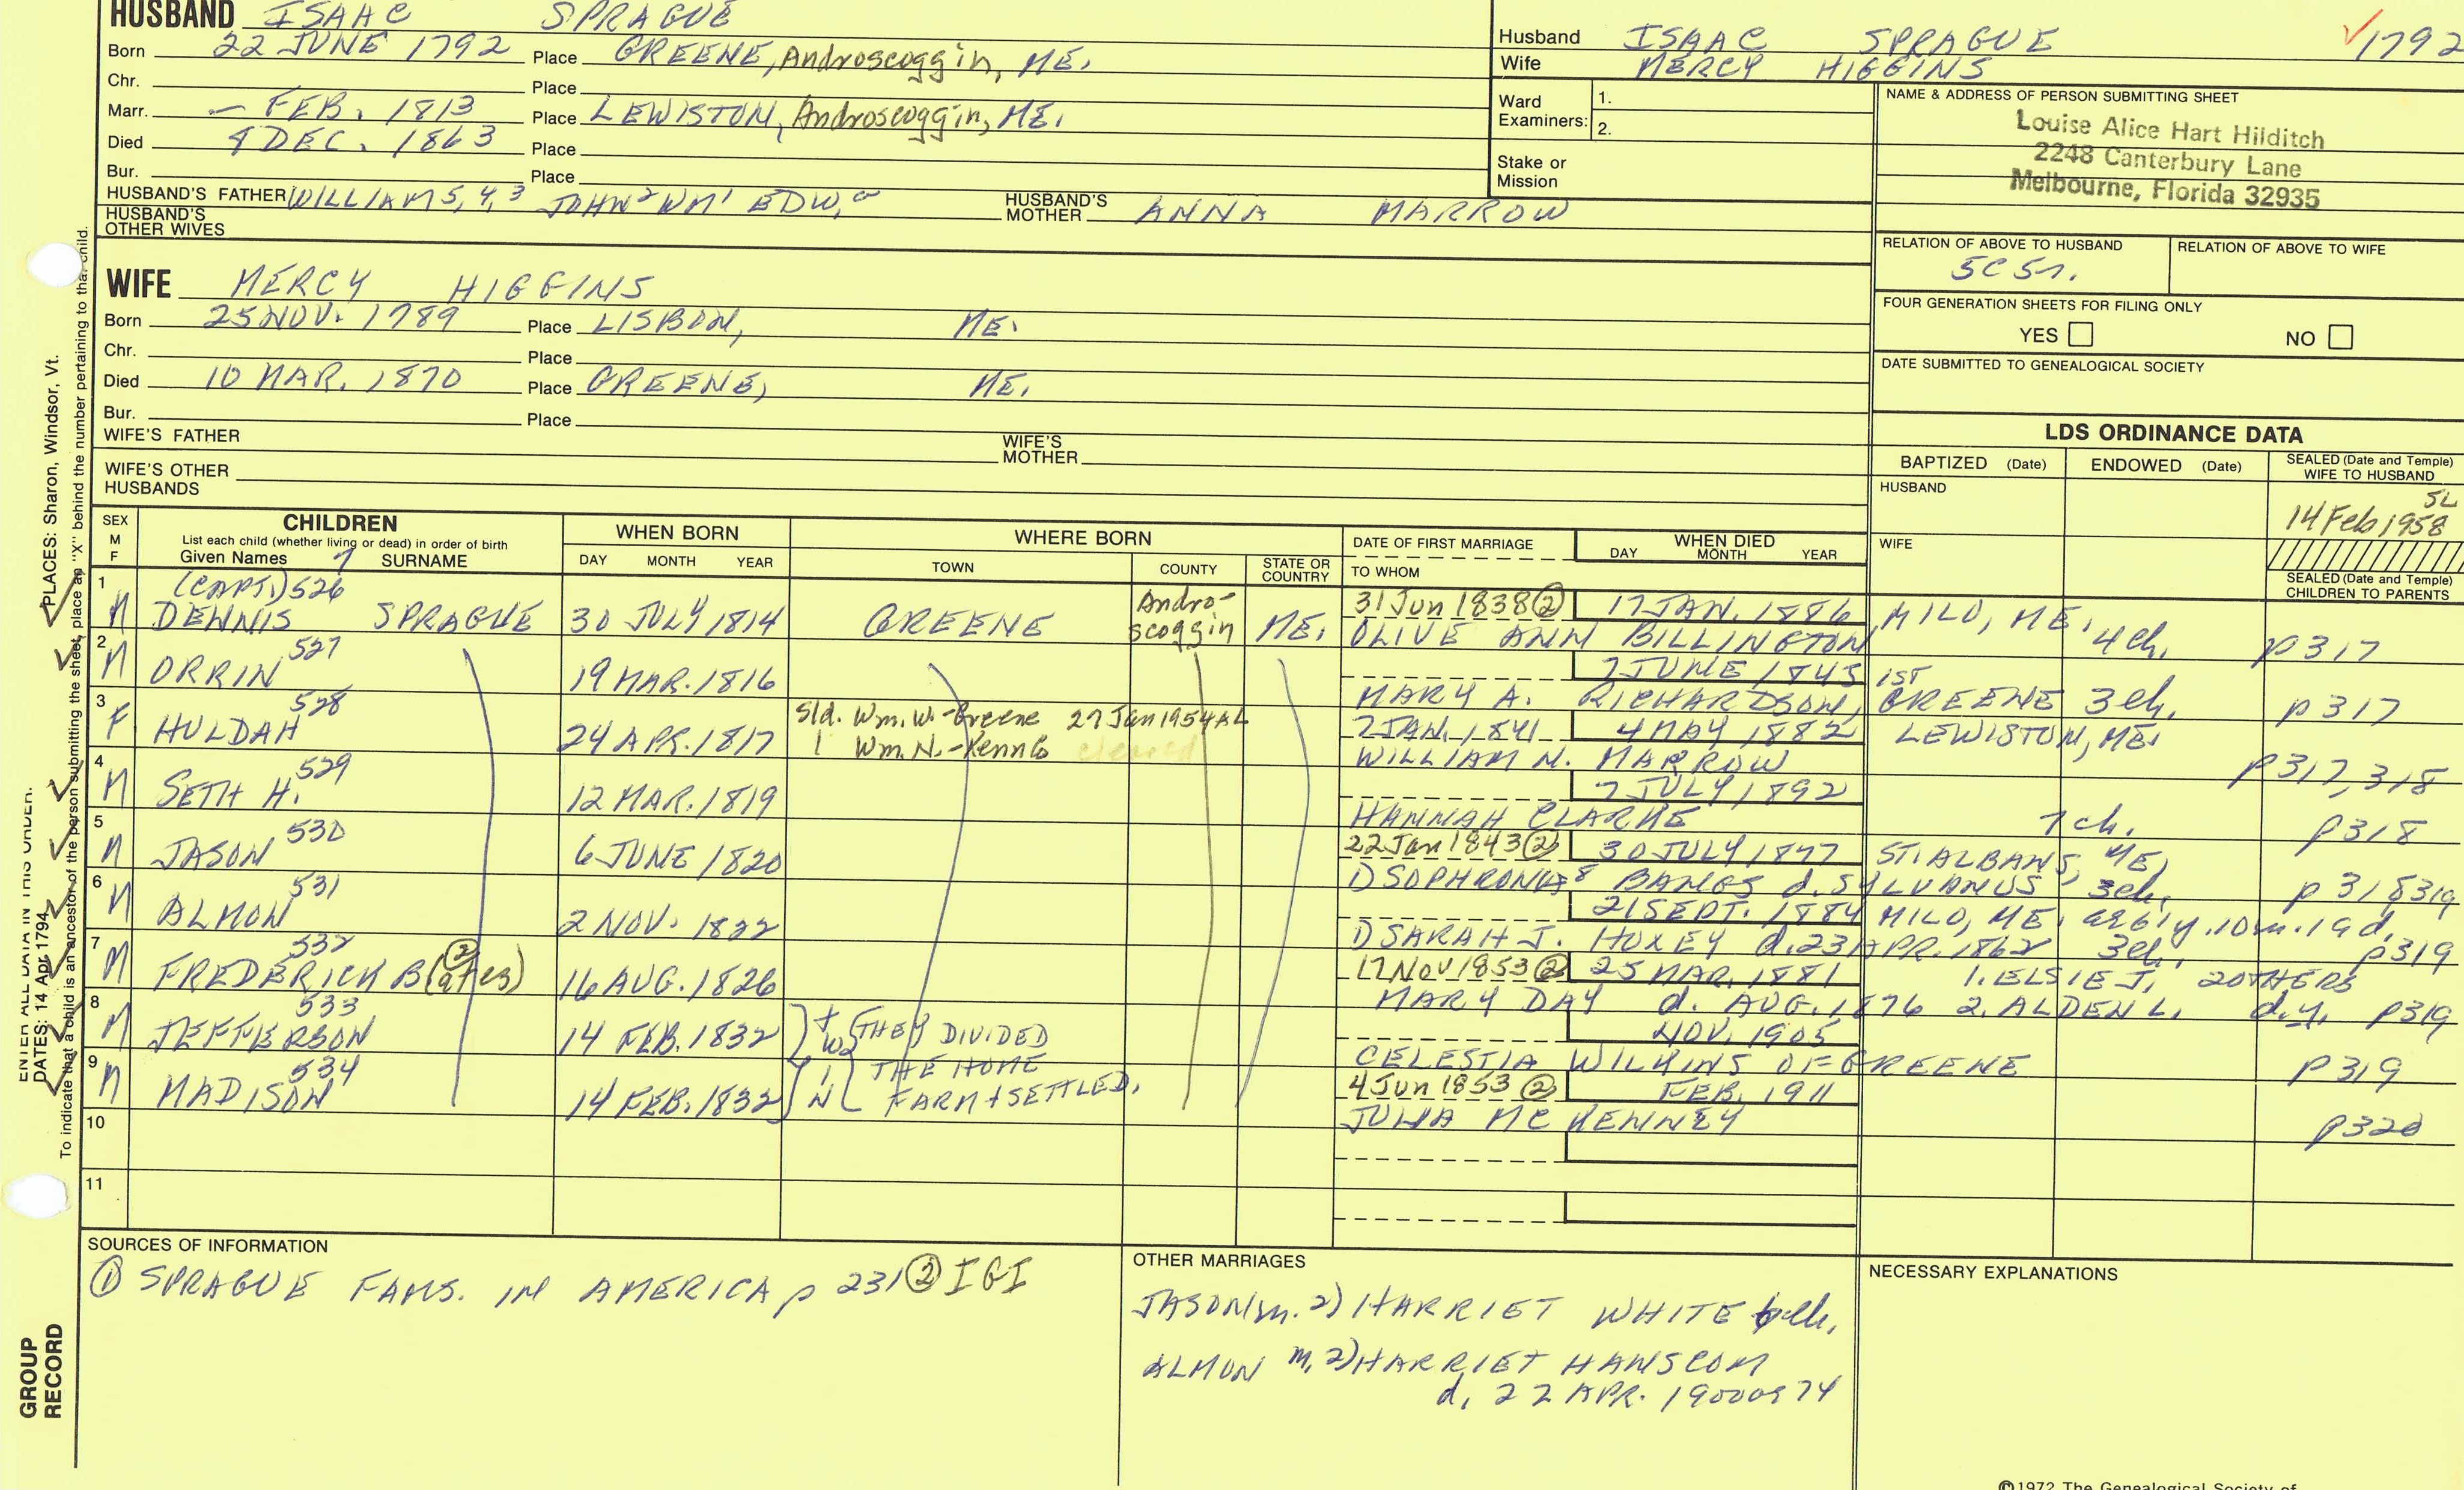 HUSBAND ISAAC SPRAGUE
Born 22 JUNE 1792 Place GREENE, Androscoggin, ME.
Chr. Place
Marr. — FEB. 1813 Place LEWISTON, Androscoggin, ME.
Died DEC. 1863 Place
Bur. Place
HUSBAND'S FATHER WILLIAM 5, 4, 3 JOHN 2 WM 1 EDW, 0 HUSBAND'S MOTHER ANNA MARROW
HUSBAND'S OTHER WIVES
Husband ISAAC SPRAGUE ✓1792
Wife MERCY HIGGINS
Ward Examiners: 1.
2.
Stake or Mission
NAME & ADDRESS OF PERSON SUBMITTING SHEET
Louise Alice Hart Hilditch
2248 Canterbury Lane
Melbourne, Florida 32935
RELATION OF ABOVE TO HUSBAND RELATION OF ABOVE TO WIFE
5C 5r.
FOUR GENERATION SHEETS FOR FILING ONLY
YES NO
DATE SUBMITTED TO GENEALOGICAL SOCIETY
WIFE MERCY HIGGINS
Born 25 NOV. 1789 Place LISBON, ME.
Chr. Place
Died 10 MAR. 1870 Place GREENE, ME.
Bur. Place
WIFE'S FATHER WIFE'S MOTHER
WIFE'S OTHER HUSBANDS
LDS ORDINANCE DATA
BAPTIZED (Date) ENDOWED (Date) SEALED (Date and Temple) WIFE TO HUSBAND
HUSBAND SL
14 Feb 1958
WIFE
SEALED (Date and Temple) CHILDREN TO PARENTS
SEX M F CHILDREN WHEN BORN WHERE BORN DATE OF FIRST MARRIAGE WHEN DIED
List each child (whether living or dead) in order of birth
Given Names 7 SURNAME DAY MONTH YEAR TOWN COUNTY STATE OR COUNTRY TO WHOM DAY MONTH YEAR
1 (CAPT.) 526 Andro- 31 Jun 1838 ② 17 JAN. 1886 MILO, ME.
M DENNIS SPRAGUE 30 JULY 1814 GREENE scoggin ME. OLIVE ANN BILLINGTON 4 ch. p317
2 527 7 JUNE 1843 1ST
M ORRIN 19 MAR. 1816 MARY A. RICHARDSON, GREENE 3 ch. p317
3 528 Sld. Wm. W.-Greene 27 Jan 1954 AL 7 JAN. 1841 4 MAY 1882 LEWISTON, ME.
F HULDAH 24 APR. 1817 1 Wm. N.-Kenn Co cleared WILLIAM N. MARROW p317, 318
4 529 7 JULY 1892
M SETH H. 12 MAR. 1819 HANNAH CLARKE 7 ch. p318
5 530 22 Jan 1843 ② 30 JULY 1877 ST. ALBANS, ME,
M JASON 6 JUNE 1820 1) SOPHRONIA 8 BANGS d. SYLVANUS 3 ch. p 318 319
6 531 21 SEPT. 1884 MILO, ME.
M ALMON 2 NOV. 1822 1) SARAH J. HUXEY d. 23 APR. 1862 3 ch. p319
7 532 ② 17 NOV 1853 ② 25 MAR. 1881 1. ELSIE J, 2 OTHERS
M FREDERICK B(ates) 16 AUG. 1826 MARY DAY d. AUG. 1876 2. ALDEN L. d.y. p319
8 533 NOV. 1905
M JEFFERSON 14 FEB. 1832 TWIN THEY DIVIDED CELESTIA WILKINS OF GREENE p319
9 534 THE HOME 4 Jun 1853 ② FEB. 1911
M MADISON 14 FEB. 1832 FARM + SETTLED. JULIA MC KENNEY p320
10
11
SOURCES OF INFORMATION
① SPRAGUE FAMS. IN AMERICA p 231 ② IGI
OTHER MARRIAGES
JASON m. 2) HARRIET WHITE ch.
ALMON m, 2) HARRIET HANSCOM
d, 22 APR. 1900
NECESSARY EXPLANATIONS
©1972 The Genealogical Society of
ENTER ALL DATA IN THIS ORDER:
DATES: 14 Apr 1794 PLACES: Sharon, Windsor, Vt.
To indicate that a child is an ancestor of the person submitting the sheet, place an "X" behind the number pertaining to that child.
GROUP RECORD